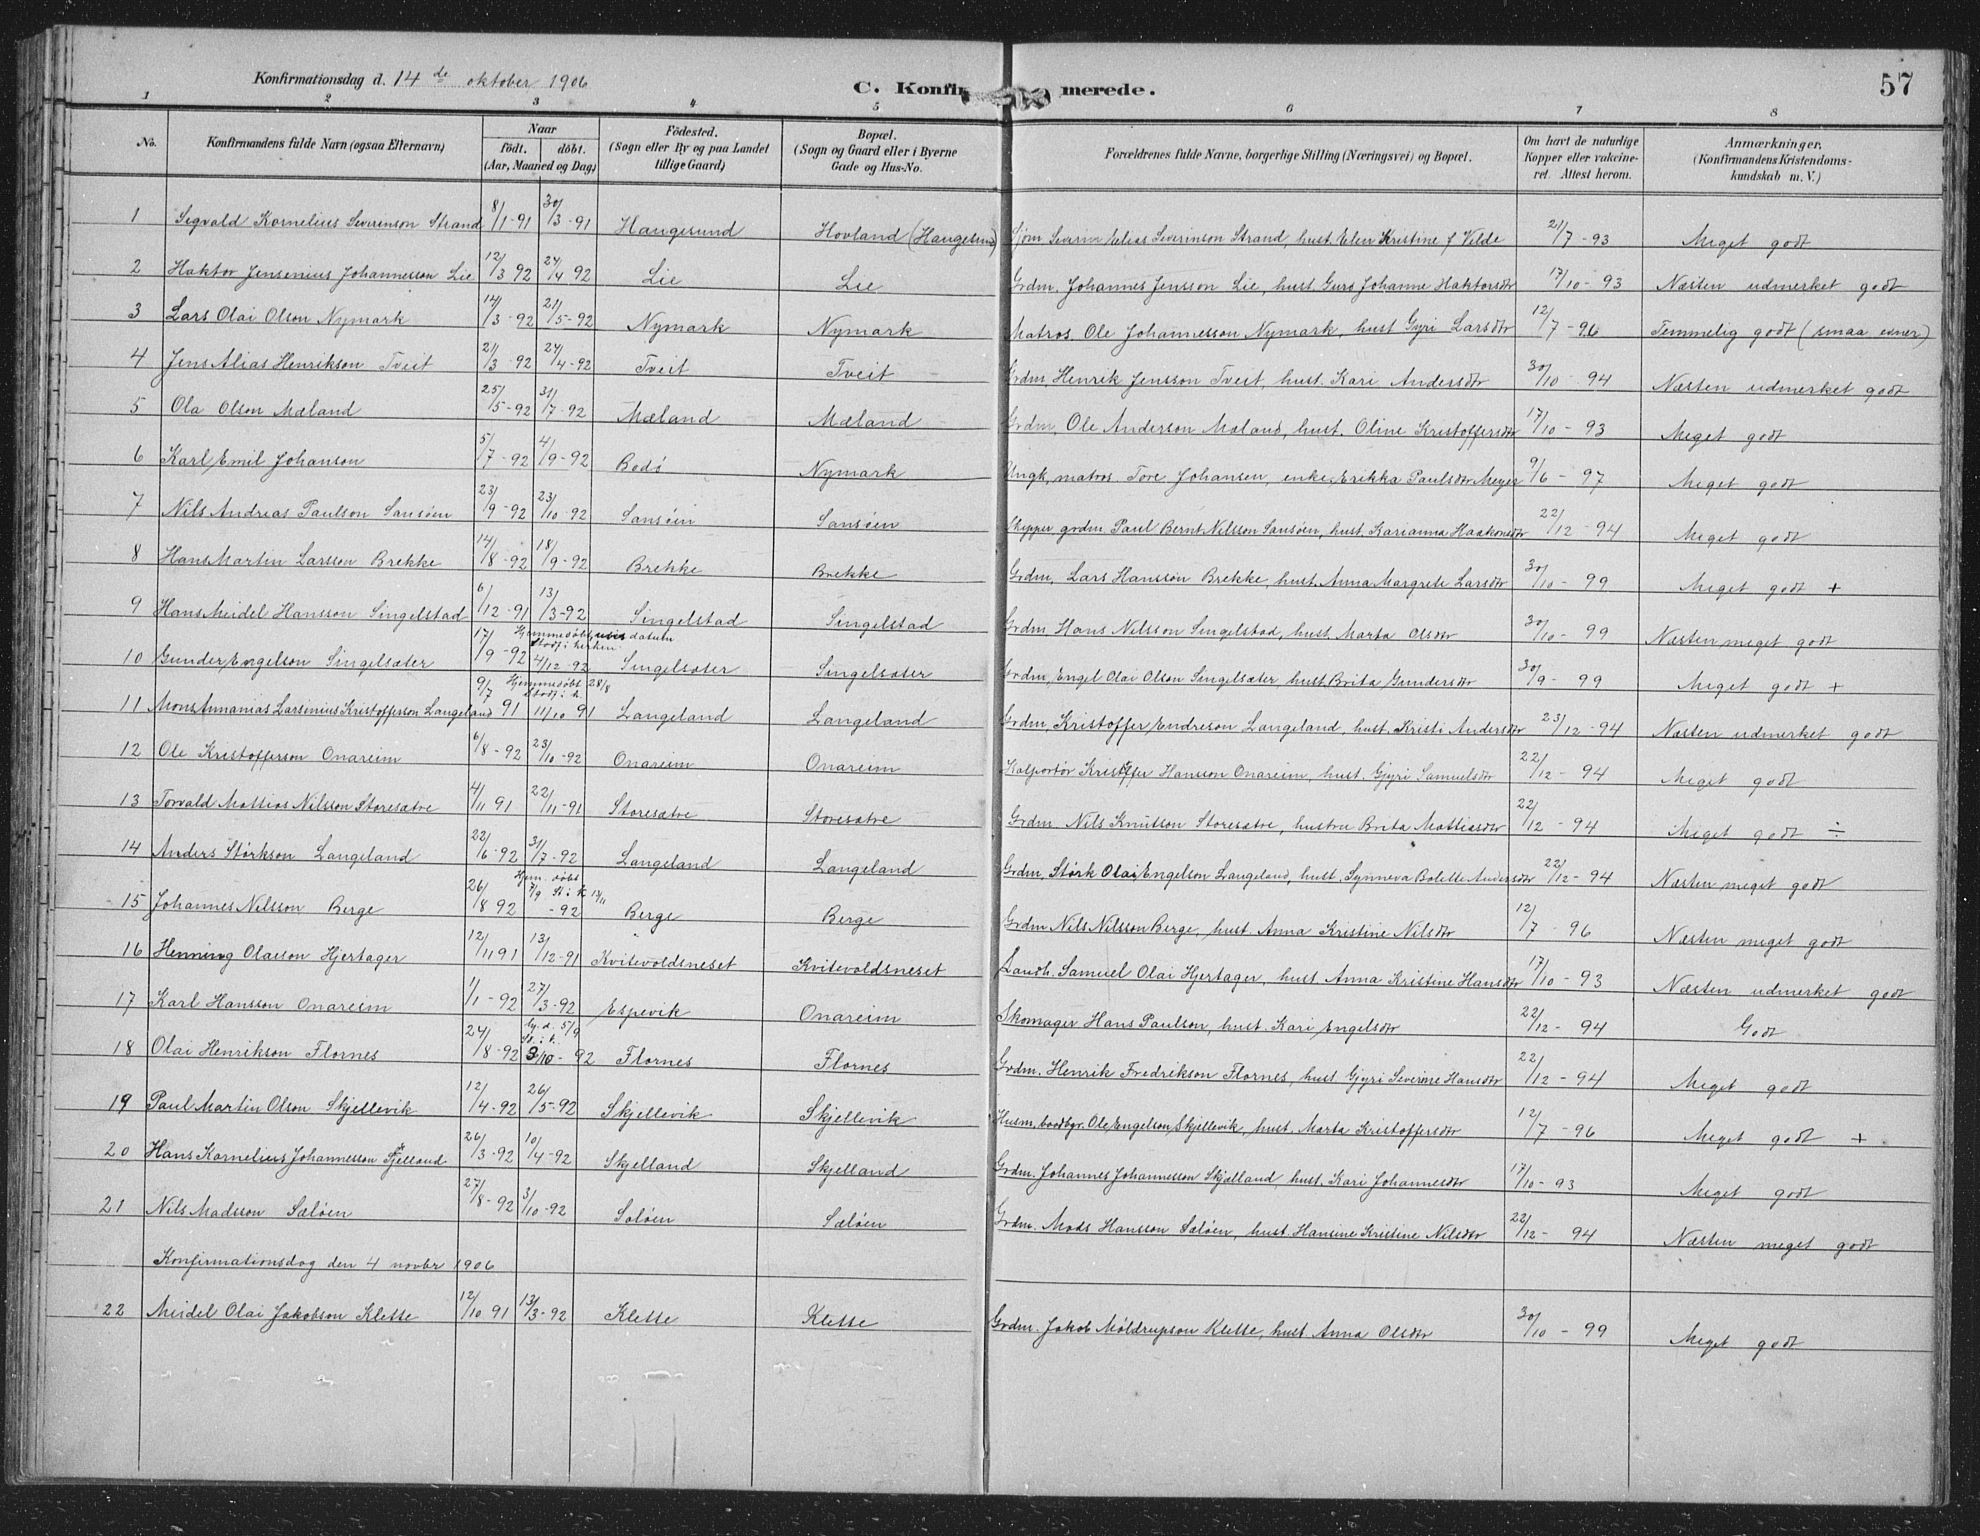 57
Konfirmationsdag d. 14 de oktober 1906
C. Konfirmerede.
1 2 3 4 5 6 7 8
No. Konfirmandens fulde Navn (ogsaa Efternavn) Naar født. døbt. (Aar, Maaned og Dag) Fødested. (Sogn eller By og paa Landet tillige Gaard) Bopæl. (Sogn og Gaard eller i Byerne Gade og Hus-No. Forældrenes fulde Navne, borgerlige Stilling (Næringsvei) og Bopæl. Om havt de naturlige Kopper eller vakcineret. Attest herom. Anmærkninger. (Konfirmandens Kristendomskundskab m. V.)
1 Sigvald Kornelius Severinson Strand 8/1-91 30/3-91 Haugesund Hovland (Haugesund) Sjøm. Severin Elias Severinson Strand, hust. Elen Kristine f Velde 21/7-93 Meget godt
2 Haktor Jensenius Johannesson Lie 12/3 92 24/4 92 Lie Lie Grdm. Johannes Jensson Lie, hust. Guro Johanne Haktorsdtr 17/10-93 Næsten udmerket godt
3 Lars Olai Olson Nymark 14/3-92 21/5-92 Nymark Nymark Matros. Ole Johannesson Nymark, hust Gyri Larsdtr 12/7-96 Temmelig godt (smaa evner)
4 Jens Alias Henrikson Tveit 21/3 92 24/4-92 Tveit Tveit Grdm. Henrik Jensson Tveit, hust. Kari Andersdtr 30/10 94 Næsten udmerket godt
5 Ola Olson Mæland 25/5-92 31/7-92 Mæland Mæland Grdm. Ole Anderson Mæland, hust. Oline Kristoffersdtr 17/10-93 Meget godt
6 Karl Emil Johanson 5/7-92 4/9-92 Bodø Nymark Ungk, matros. Tore Johansen, enke Erikka Paulsdtr Meyer 9/6-97 Meget godt
7 Nils Andreas Paulson Sansøen 23/9-92 23/10-92 Sansøen Sansøen Skipper, grdm. Paul Bernt Nilsson Sansøen, hust. Karianna Haakonsdtr 22/12-94 Meget godt
8 Hans Martin Larsson Brekke 14/8-92 18/9-92 Brekke Brekke Grdm. Lars Hansson Brekke, hust. Anna Margrete Larsdtr 30/10-99 Meget godt +
9 Hans Meidel Hansson Singelstad 6/12-91 13/3-92 Singelstad Singelstad Grdm Hans Nilsson Singelstad, hust. Marta Olsdtr 30/10-99 Næsten meget godt
10 Gunder Engelson Singelsæter 17/9-92 Hjemmedøbt, uvis datum Stadf. i kirken 4/12-92 Singelsæter Singelsæter Grdm, Engel Olai Olson Singelsæter, hust. Brita Gundersdtr 30/9-99 Meget godt +
11 Mons Annanias Larsinius Kristofferson Langeland 9/7 91 Hjemmedøbt 28/8 Stadf. i k. 11/10 91 Langeland Langeland Grdm. Kristoffer Endreson Langeland, hust. Kristi Andersdtr 23/12-94 Næsten udmerket godt
12 Ole Kristofferson Onareim 6/8-92 23/10-92 Onareim Onareim Kolportør Kristoffer Hansson Onareim, hust. Gjyri Samuelsdtr 22/12-94 Meget godt
13 Torvald Mattias Nilsson Storesætre 4/11 91 22/11-91 Storesætre Storesætre Grdm. Nils Knutson Storesætre, hustru Brita Mattiasdtr 22/12-94 Meget godt ÷
14 Anders Størkson Langeland 22/6-92 31/7-92 Langeland Langeland Grdm. Størk Olai Engelson Langeland, hust. Synneva Bolette Andersdtr 22/12-94 Næsten meget godt
15 Johannes Nilsson Berge 26/8 92 Hjem. døbt 7/9 St. i k 13/11 -92 Berge Berge Grdm Nils Nilsson Berge, hust. Anna Kristine Nilsdtr 12/7-96 Næsten meget godt
16 Henning Olaeson Hjertager 12/11 91 13/12-91 Kvitevoldsneset Kvitevoldsneset Landh. Samuel Olai Hjertager, hust Anna Kristine Hansdtr 17/10-93 Næsten udmerket godt
17 Karl Hansson Onareim 1/1-92 27/3-92 Espevik Onareim Skomager Hans Paulson, hust. Kari Engelsdtr 22/12-94 Godt
18 Olai Henrikson Flornes 24/8-92 hj. d. 5/9 St. i k. 9/10-92 Flornes Flornes Grdm. Henrik Fredrikson Flornes, hust Gjyri Severine Hansdtr 22/12-94 Meget godt
19 Paul Martin Olson Skjellevik 12/4-92 26/5-92 Skjellevik Skjellevik Husm. baadbgr. Ole Engelson Skjellevik, hust. Marta Kristoffersdtr 12/7-96 Meget godt +
20 Hans Kornelius Johannesson Skjelland 26/3-92 10/4-92 Skjelland Skjelland Grdm. Johannes Johannesson Skjælland, hust. Kari Johannesdtr 17/10-93 Meget godt
21 Nils Madsson Sæløen 27/8-92 3/10-92 Søløen Sæløen Grdm. Mads Hansson Sæløen, hust. Hansine Kristine Nilsdtr 22/12-94 Næsten meget godt
Konfirmationsdag den 4 novbr 1906
22 Meidel Olai Jakobson Klette 12/10 91 13/3-92 Klette Klette Grdm. Jakob Møldrupson Klette, hust Anna Olsdtr 30/10-99 Meget godt